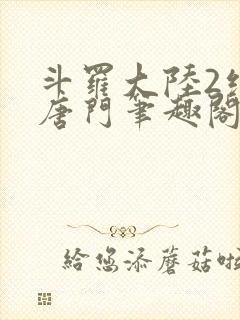 斗羅大陸2
唐門筆趣閣
給您添蘑菇啦